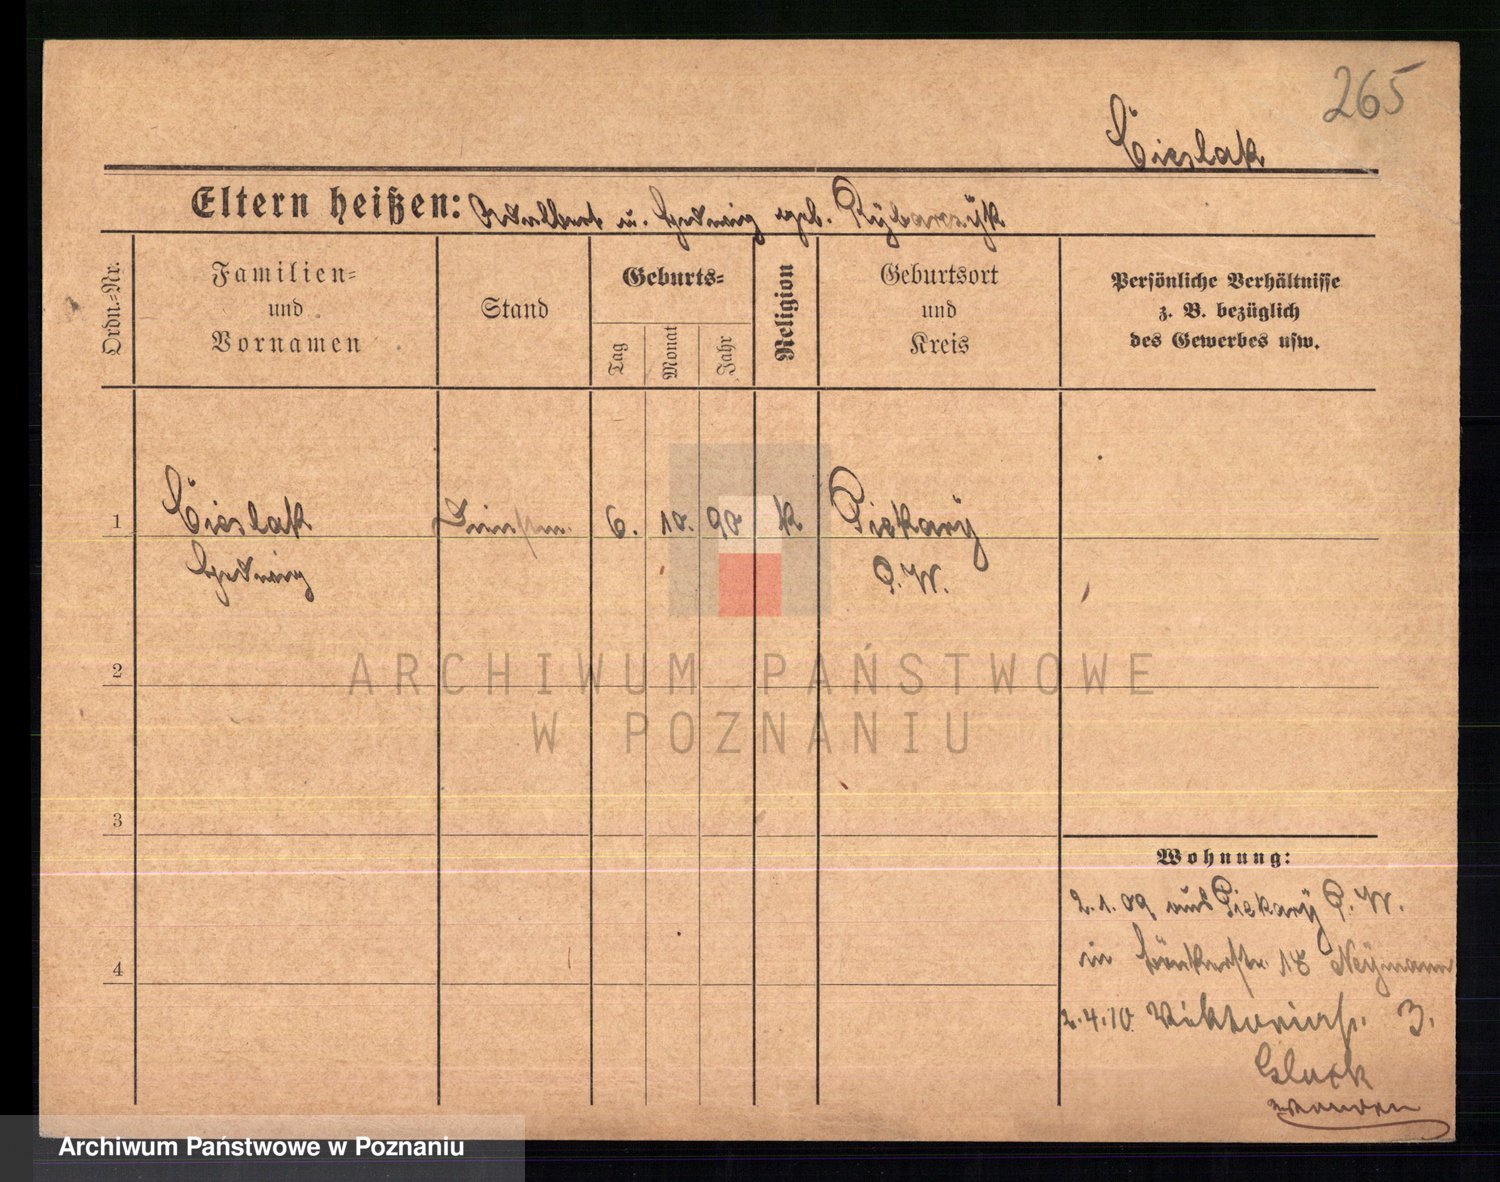 265
Cieslak
Eltern heißen: Adalbert u. Hedwig geb. Rÿbarczÿk
Ordn.=Nr.
Familien=
und
Vornamen
Stand
Geburts=
Tag
Monat
Jahr
Religion
Geburtsort
und
Kreis
Persönliche Verhältnisse
z. B. bezüglich
des Gewerbes usw.
1
Cieslak
Hedwig
Dienstm.
6.
10.
90
K
Piekarÿ
P.W.
2
3
4
Wohnung:
2.1.09 aus Piekarÿ P.W.
in 18 Neÿmann
2.4.10 Viktoriastr. 3.
ARCHIWUM PAŃSTWOWE
W POZNANIU
Archiwum Państwowe w Poznaniu